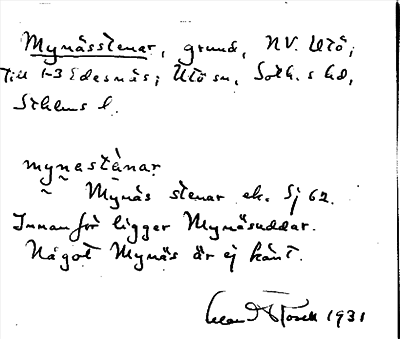 Mynässtenar, grund, NV. Utö,
Till 1-3 Edesnäs; Utö sn, Soth.s hd,
Sthlms l.
mynestànar
Mynäs stenar ek. Sj 62.
Innanför ligger Mynäsuddar.
Något Mynäs är ej känt.
1931